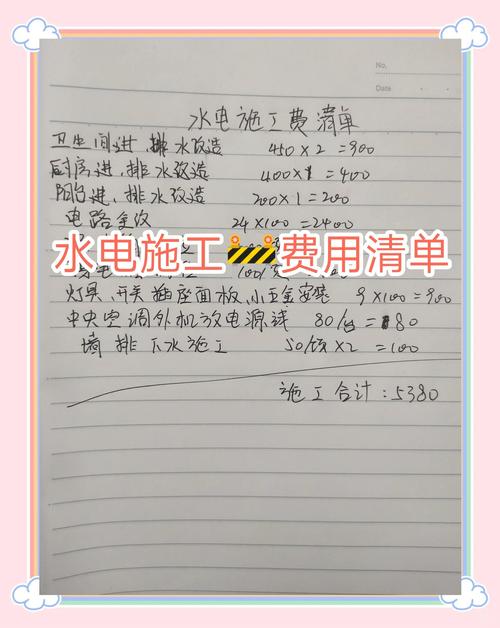 No.
Date
水电施工费清单
卫生间进、排水改造 450×2=900
厨房进、排水改造 400×1=400
阳台进、排水改造 200×1=200
电路全改 24×100=2400
水电施工🚧费用清单
100/
灯具、开关插座面板、小五金安装 9×100=900
中央空调外机放电源线 80/台=80
墙排下水施工 50/个×2=100
施工合计:5380